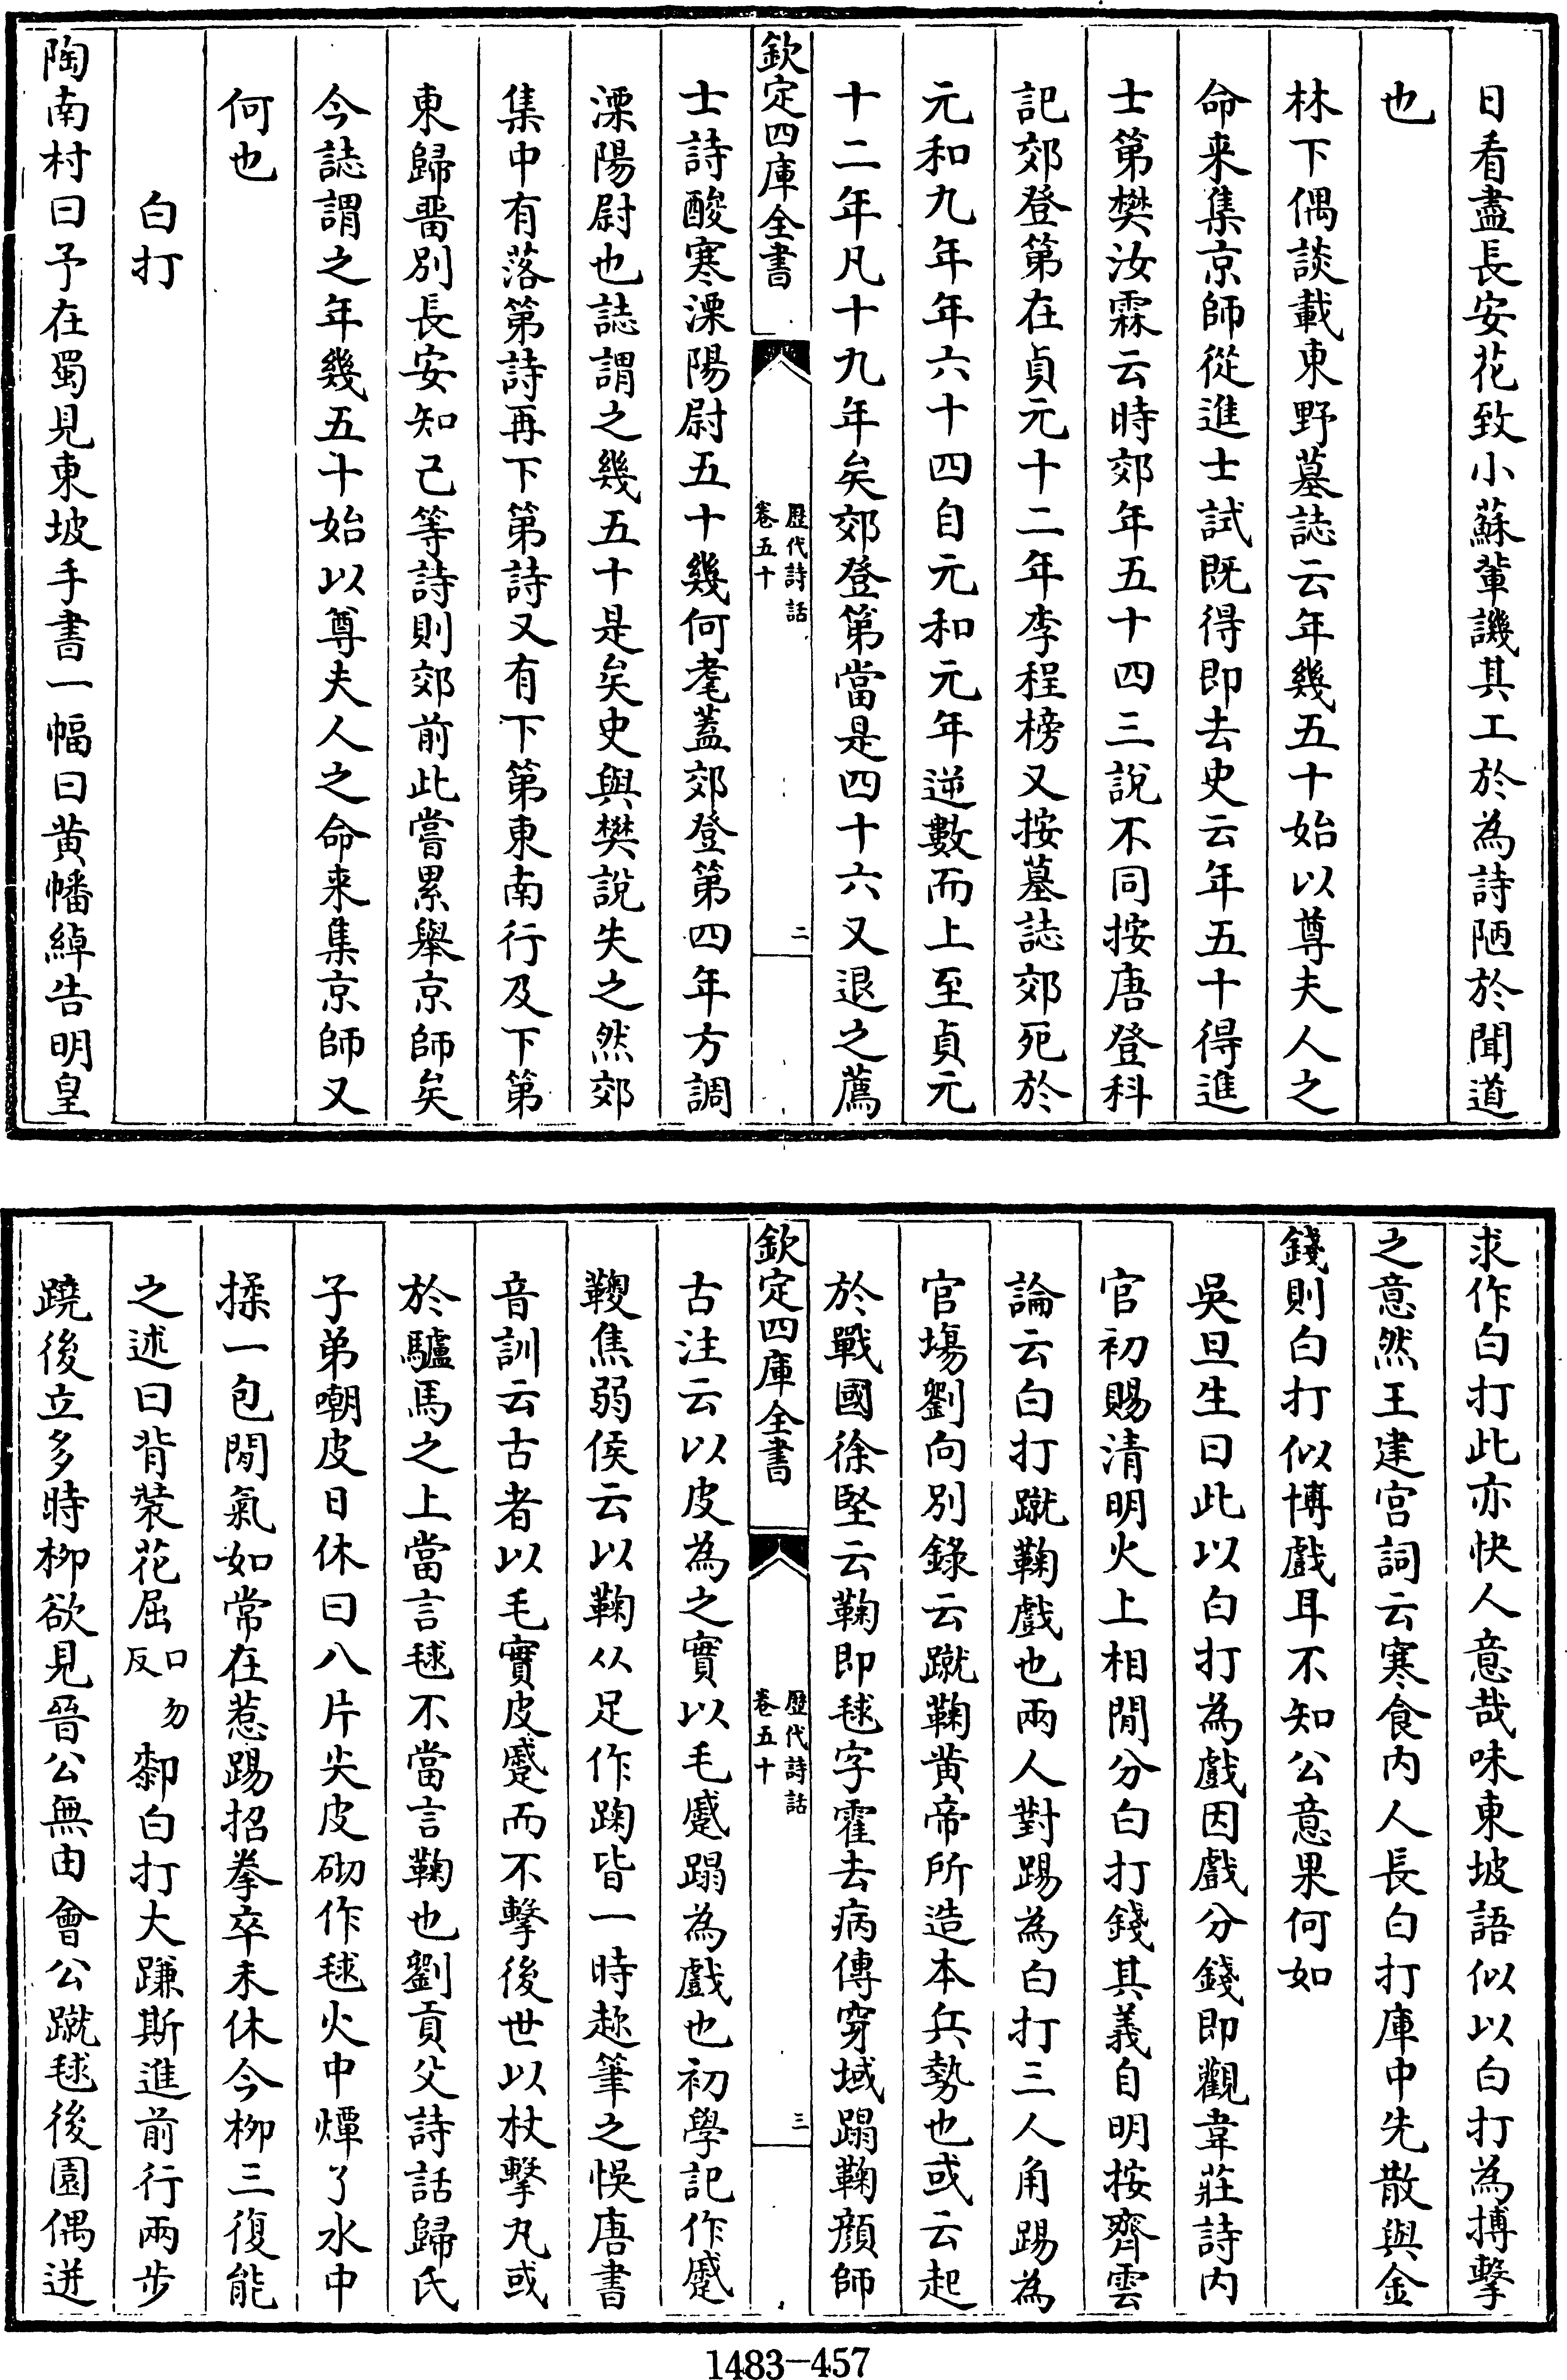 日看盡長安花致小蘇輩譏其工於為詩陋於聞道
也
林下偶談載東野墓誌云年幾五十始以尊夫人之
命来集京師從進士試既得即去史云年五十得進
士第樊汝霖云時郊年五十四三說不同按唐登科
記郊登第在貞元十二年李程榜又按墓誌郊死於
元和九年年六十四自元和元年逆數而上至貞元
十二年凡十九年矣郊登第當是四十六又退之薦
欽定四庫全書
歴代詩話
卷五十
二
士詩酸寒溧陽尉五十幾何耄蓋郊登第四年方調
溧陽尉也誌謂之幾五十是矣史與樊說失之然郊
集中有落第詩再下第詩又有下第東南行及下第
東歸畱別長安知己等詩則郊前此嘗累舉京師矣
今誌謂之年幾五十始以尊夫人之命来集京師又
何也
白打
陶南村曰予在蜀見東坡手書一幅曰黄幡綽告明皇
求作白打此亦快人意哉味東坡語似以白打為搏擊
之意然王建宫詞云寒食内人長白打庫中先散與金
錢則白打似博戲耳不知公意果何如
吳旦生曰此以白打為戲因戲分錢即觀韋莊詩内
官初賜清明火上相閒分白打錢其義自明按齊雲
論云白打蹴鞠戲也兩人對踢為白打三人角踢為
官塲劉向別錄云蹴鞠黄帝所造本兵勢也或云起
於戰國徐堅云鞠即毬字霍去病傳穿域蹋鞠顔師
欽定四庫全書
歴代詩話
卷五十
三
古注云以皮為之實以毛蹙蹋為戲也初學記作蹙
鞭焦弱侯云以鞠从足作踘皆一時趂筆之悞唐書
音訓云古者以毛實皮蹙而不擊後世以杖擊丸或
於驢馬之上當言毬不當言鞠也劉貢父詩話歸氏
子弟嘲皮日休曰八片尖皮砌作毬火中燂了水中
揉一包閒氣如常在惹踢招拳卒未休今柳三復能
之述曰背裝花屈口勿反㔼白打大㡘斯進前行兩步
蹺後立多時柳欲見晉公無由會公蹴毬後園偶迸
1483-457